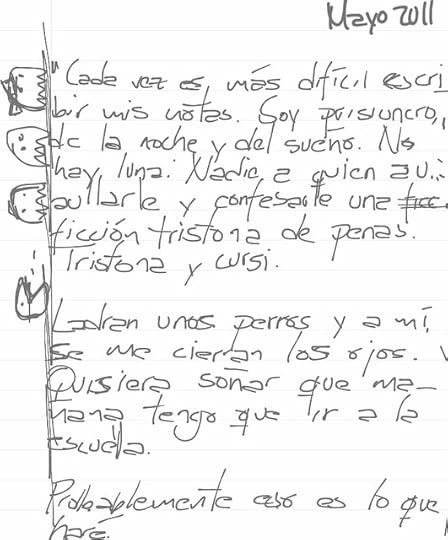 Mayo 2011
"Cada vez es más difícil escri
bir mis notas. Soy prisionero,
de la noche y del sueño. No
hay luna. Nadie a quien au..
aullarle y confesarle una
ficción tristona de penas.
Tristona y cursi.
Ladran unos perros y a mí,
se me cierran los ojos. Y
Quisiera soñar que ma-
ñana tengo que ir a la
escuela.
Probablemente eso es lo que
haré.